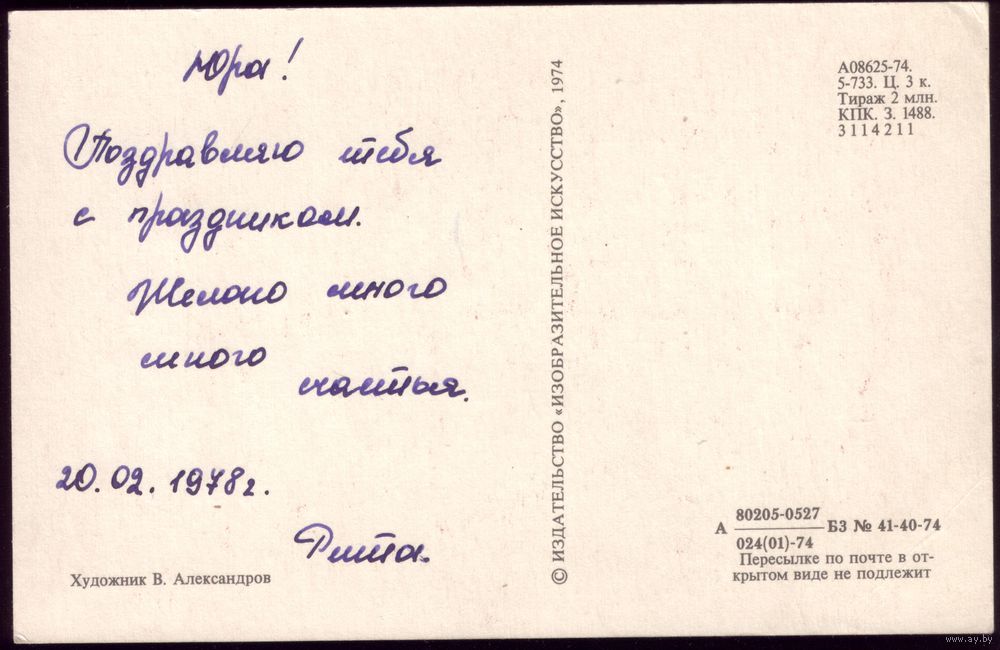 Юра!
Поздравляю тебя
с праздником.
Желаю много
много
счастья.
20.02.1978г.
Рита.
Художник В. Александров
© ИЗДАТЕЛЬСТВО «ИЗОБРАЗИТЕЛЬНОЕ ИСКУССТВО», 1974
А08625-74.
5-733. Ц. 3 к.
Тираж 2 млн.
КПК. З. 1488.
3114211
А 80205-0527 БЗ № 41-40-74
024(01)-74
Пересылке по почте в от-
крытом виде не подлежит
www.ay.by